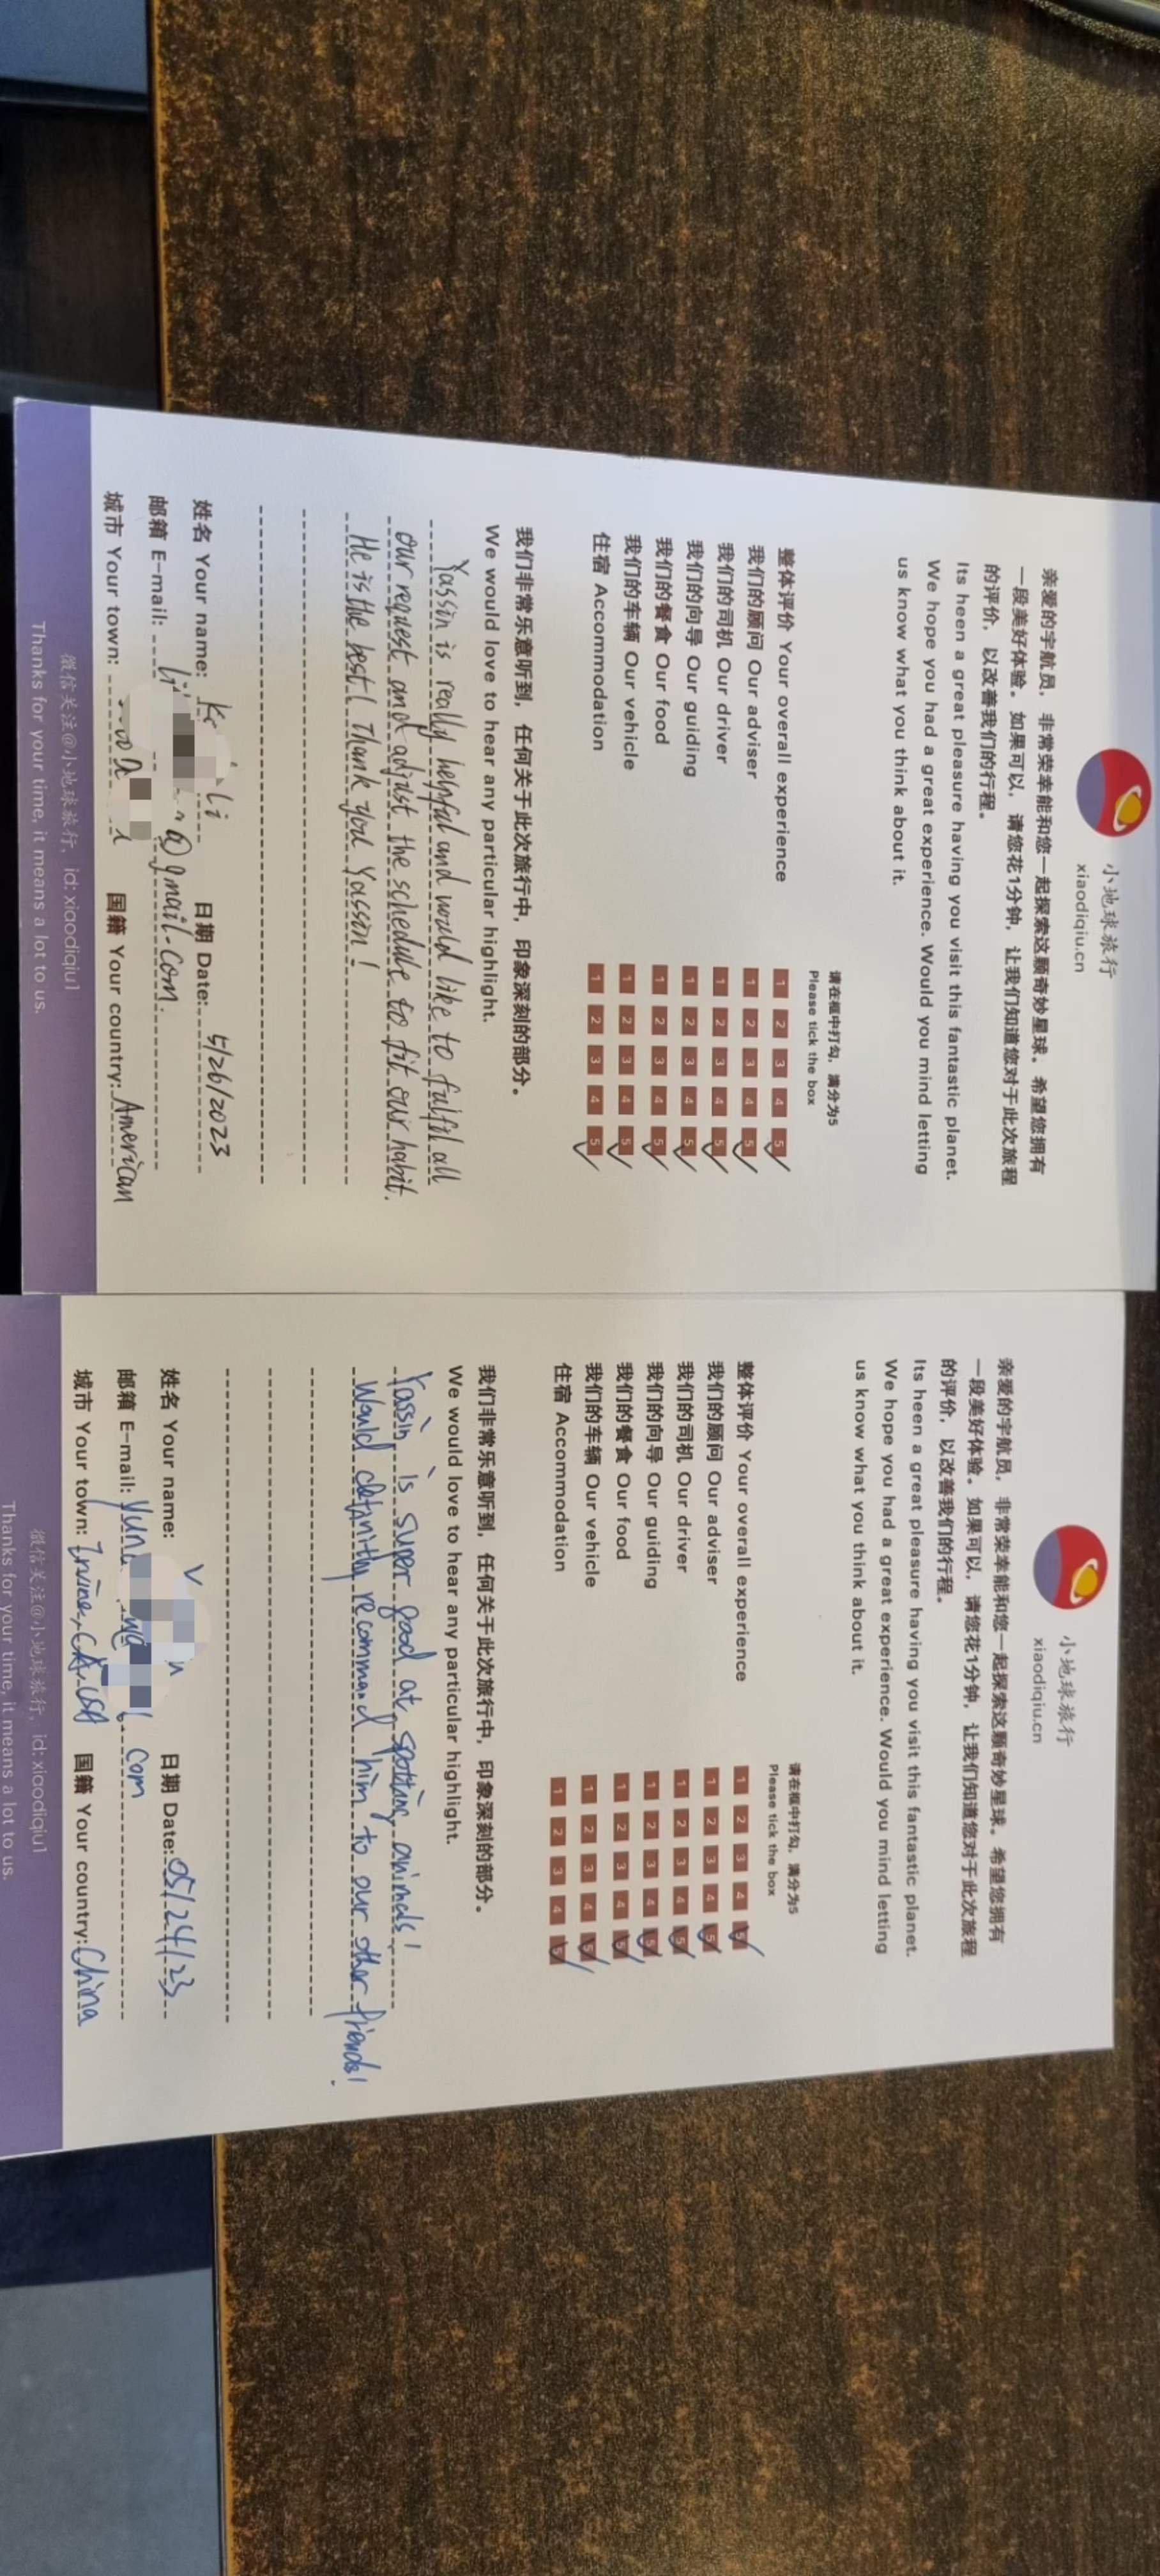 小地球旅行
xiaodiqiu.cn
亲爱的宇航员，非常荣幸能和您一起探索这颗奇妙星球。希望您拥有
一段美好体验。如果可以，请您花1分钟，让我们知道您对于此次旅程
的评价，以改善我们的行程。
Its heen a great pleasure having you visit this fantastic planet.
We hope you had a great experience. Would you mind letting
us know what you think about it.
请在框中打勾，满分为5
Please tick the box
整体评价 Your overall experience 1 2 3 4 5
我们的顾问 Our adviser 1 2 3 4 5
我们的司机 Our driver 1 2 3 4 5
我们的向导 Our guiding 1 2 3 4 5
我们的餐食 Our food 1 2 3 4 5
我们的车辆 Our vehicle 1 2 3 4 5
住宿 Accommodation 1 2 3 4 5
我们非常乐意听到，任何关于此次旅行中，印象深刻的部分。
We would love to hear any particular highlight.
Yassin is really helpful and would like to fulfil all
our request and adjust the schedule to fit our habit.
He is the best! Thank you Yassin!
姓名 Your name: Li 日期 Date: 5/26/2023
邮箱 E-mail: @gmail.com.
城市 Your town: 国籍 Your country: American
微信关注@小地球旅行，id: xiaodiqiu1
Thanks for your time, it means a lot to us.
小地球旅行
xiaodiqiu.cn
亲爱的宇航员，非常荣幸能和您一起探索这颗奇妙星球。希望您拥有
一段美好体验。如果可以，请您花1分钟，让我们知道您对于此次旅程
的评价，以改善我们的行程。
Its heen a great pleasure having you visit this fantastic planet.
We hope you had a great experience. Would you mind letting
us know what you think about it.
请在框中打勾，满分为5
Please tick the box
整体评价 Your overall experience 1 2 3 4 5
我们的顾问 Our adviser 1 2 3 4 5
我们的司机 Our driver 1 2 3 4 5
我们的向导 Our guiding 1 2 3 4 5
我们的餐食 Our food 1 2 3 4 5
我们的车辆 Our vehicle 1 2 3 4 5
住宿 Accommodation 1 2 3 4 5
我们非常乐意听到，任何关于此次旅行中，印象深刻的部分。
We would love to hear any particular highlight.
Yassin is super good at spotting animals!
Would definitly recommand him to our other friends!
姓名 Your name: 日期 Date: 05/24/23
邮箱 E-mail: com
城市 Your town: Irvine, CA, USA 国籍 Your country: China
微信关注@小地球旅行，id: xiaodiqiu1
Thanks for your time, it means a lot to us.